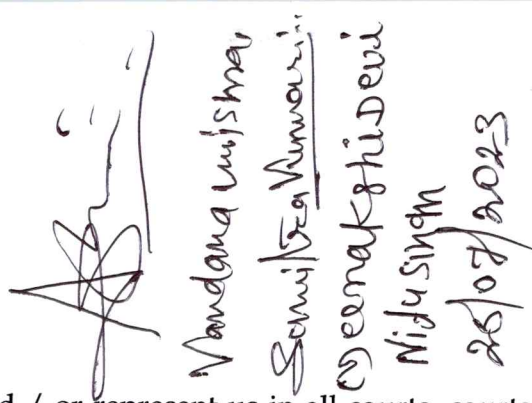 Vandana mishra
Sumitra Kumari
Meenakshi Devi
Nitu Singh
26/07/2023
d / or represent us in all courts, courts